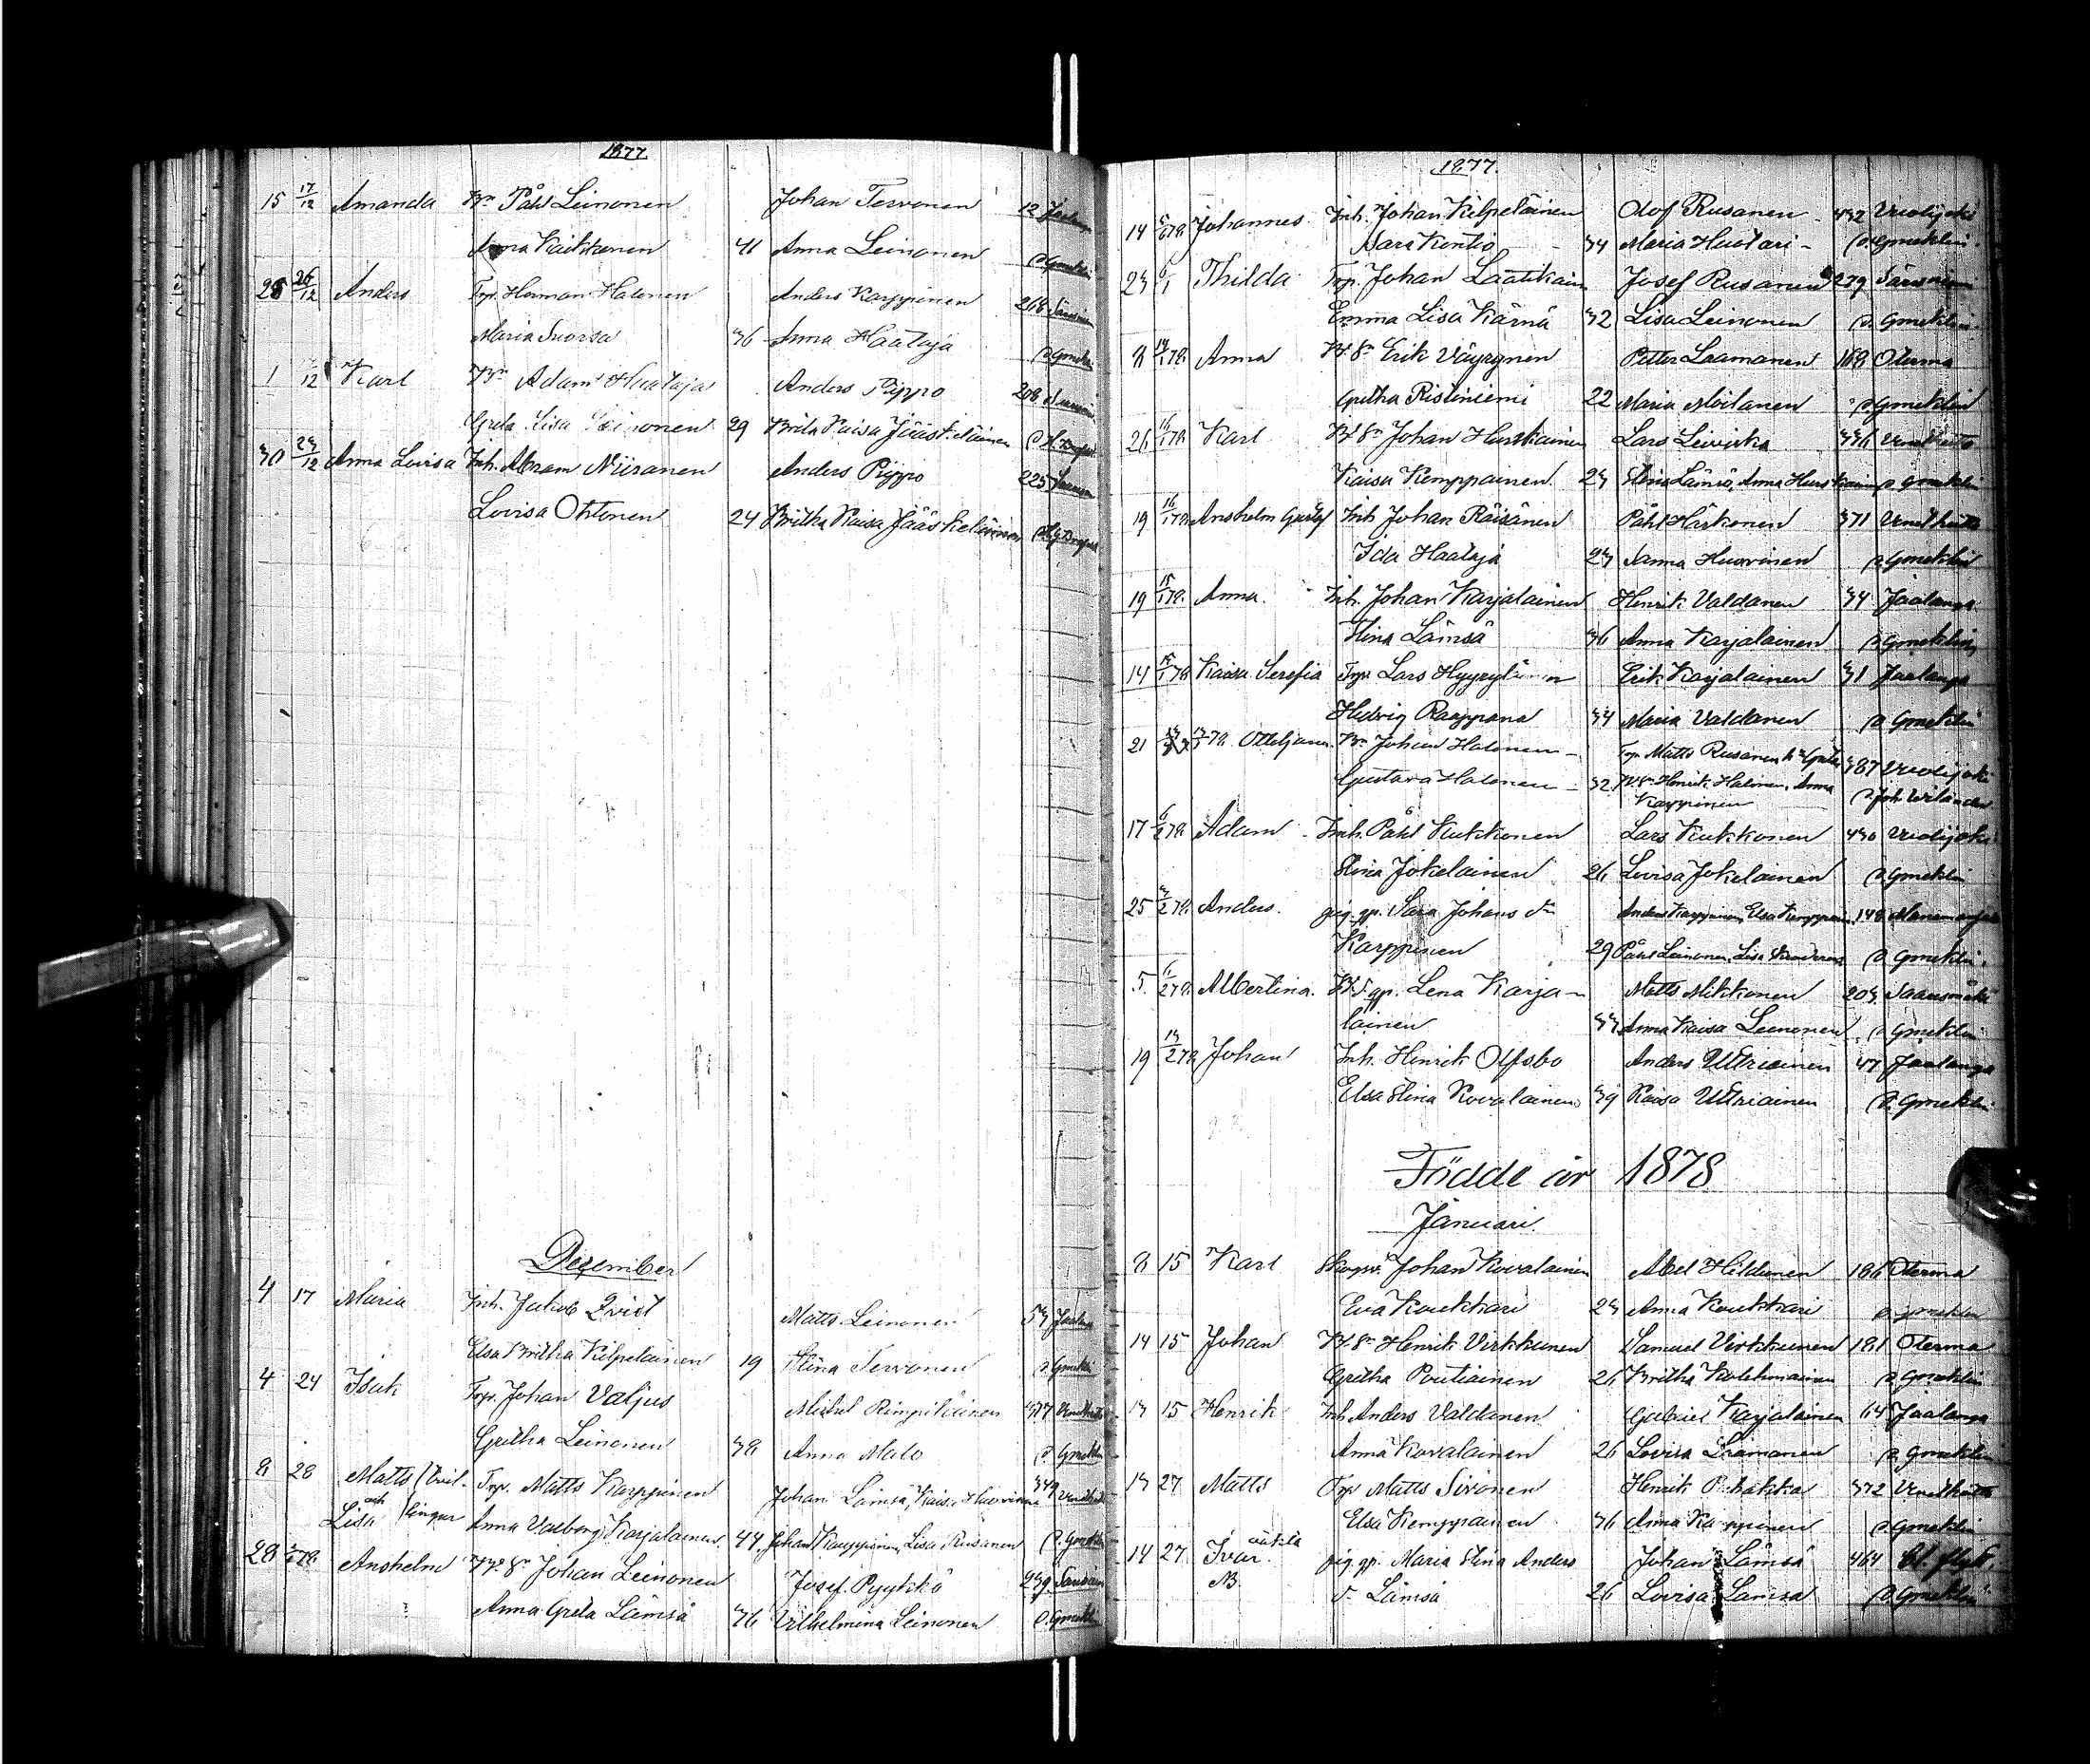 1877
15 17/12 Amanda Bn Påhl Leinonen Johan Tervonen 12 Jaalanga
Anna Kaikkonen 41 Anna Leinonen P. Gmeklin
25 26/12 Anders Trp. Herman Halonen Anders Karppinen 268
Maria Suorsa 36 Anna Haataja P. Gmeklin
1 /12 Karl Bn Adam Haataja Anders Piippo 208
Greta Lisa Leinonen 29 Brita Kaisa Jääskeläinen
30 23/12 Anna Lovisa Inh. Abram Niiranen Anders Piippo 225
Lovisa Ohtonen 24 Britha Kaisa Jääskeläinen
December
4 17 Maria Inh. Jakob Qvist Matts Leinonen 53 Jaalanga
Elsa Britha Kilpeläinen 19 Stina Tervonen P. Gmeklin
4 24 Isak Trp. Johan Valjus Mickel Rimpiläinen
Gretha Leinonen 38 Anna Malo P. Gmeklin
8 28 Matts och Lisa tvillingar Trp. Matts Karppinen Johan Lämsä, Kaisa Huovinen 349
Anna Valborg Karjalainen 44 Johan Karppinen, Lisa Rusanen P. Gmeklin
28 Anshelm B. Sn Johan Leinonen Josef Pyykkö 239
Anna Greta Lämsä 36 Vilhelmina Leinonen P. Gmeklin
1877.
14 Johannes Inh. Johan Kilpeläinen Olof Rusanen 432 Vuolijoki
Sara Kontio 34 Maria Huotari P. Gmeklin
23 6/1 Thilda Trp. Johan Laatikain Josef Rusanen 279
Emma Lisa Kärnä 32 Lisa Leinonen P. Gmeklin
8 14/1 78. Anna B. Sn Erik Väyrynen Petter Laamanen 168 Oterma
Gretha Ristiniemi 22 Maria Moilanen P. Gmeklin
26 16/1 78. Karl B. Sn Johan Hurskainen Lars Leiviska 336
Kaisa Kemppainen 23 Stina Lämsä, Anna Hurskainen P. Gmeklin
19 16/1 78. Anshelm Gustaf Inh Johan Räisänen Påhl Härkönen 371
Ida Haataja 23 Sanna Huovinen P. Gmeklin
19 15/1 78. Anna. Inh. Johan Karjalainen Henrik Valdanen 34 Jaalanga
Stina Lämsä 36 Anna Karjalainen P. Gmeklin
14 15/1 78 Kaisa Serefia Trp. Lars Hyyryläinen Erik Karjalainen 31 Jaalanga
Hedvig Raappana 34 Maria Valdanen P. Gmeklin
21 78. Bn Johan Halonen Trp. Matts Rusanen 387 Vuolijoki
Gustava Halonen 32 B. Sn Henrik Halonen, Anna
Karppinen P. Joh. Welander
17 6/2 78. Adam Inh. Påhl Kukkonen Lars Kukkonen 430 Vuolijoki
Stina Jokelainen 26 Lovisa Jokelainen P. Gmeklin
25 /2 78. Anders. pig. gp. Sara Johans dr Anders Karppinen, Elsa Karppinen 148
Karppinen 29 Påhl Leinonen, Lisa P. Gmeklin
5. /2 78. Albertina. gp. Lena Karja- Matts Mikkonen 203
lainen 33 Anna Kaisa Leinonen P. Gmeklin
19 13/2 78 Johan Inh. Henrik Olfsbo Anders Uttriainen 47 Jaalanga
Elsa Stina Kovalainen 39 Kaisa Uttriainen P. Gmeklin
Födde år 1878
Januari.
8 15 Karl Skogsv. Johan Kovalainen Abel Hildunen 186 Oterma
Eva Koukkari 23 Anna Koukkari P. Gmeklin
14 15 Johan B. Sn Henrik Virkkunen Samuel Virkkunen 181 Oterma
Gretha Poutiainen 26 Britha Kolehmainen P. Gmeklin
13 15 Henrik Inh Anders Valdanen Gabriel Karjalainen 64 Jaalanga
Anna Kovalainen 26 Lovisa Laamanen P. Gmeklin
13 27 Matts Trp Matts Sivonen Henrik 372
Elsa Kemppainen 36 Anna P. Gmeklin
14 27 Ivar oäkta pig. gp. Maria Stina Anders Johan Lämsä 464
NB. d. Lämsä 26 Lovisa Lämsä P. Gmeklin